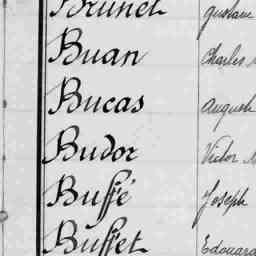 Brunet Gustave
Buan Charles
Bucas Auguste
Budor Victor
Buffé Joseph
Buffet Edouard